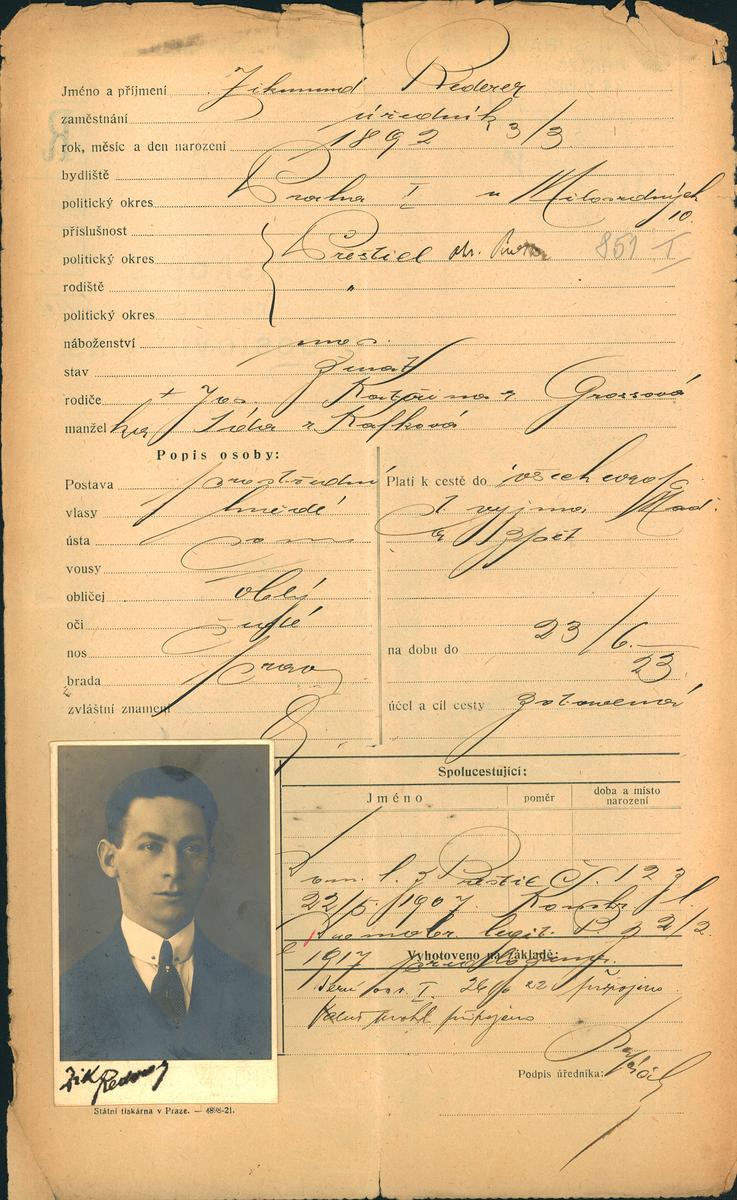 Jméno a příjmení Zikmund Rederer
zaměstnání úředník
rok, měsíc a den narození 1892 3/3
bydliště
politický okres Praha I u Milosrdných 10.
příslušnost
politický okres Přeštic 851 I
rodiště "
politický okres
náboženství mos.
stav ženat
rodiče + Jos. Kateřina r Grossová
manžel ka Lída r. Kafková
Popis osoby:
Postava prostřední
vlasy hnědé
ústa
vousy
obličej oblý
oči šedé
nos
brada
zvláštní znamení
Platí k cestě do všech evrop.
st. vyjma Maď.
a zpět
na dobu do 23/6. 23
účel a cíl cesty zotavená
Spolucestující:
Jméno poměr doba a místo narození
Dom. l. z Přeštic Č. 127
22/5 1907.
legit. P. z 2/2
1917
Vyhotoveno na základě:
I. 22 připojeno
připojeno
Podpis úředníka:
Zik Rederer
Státní tiskárna v Praze. — 4898-21.